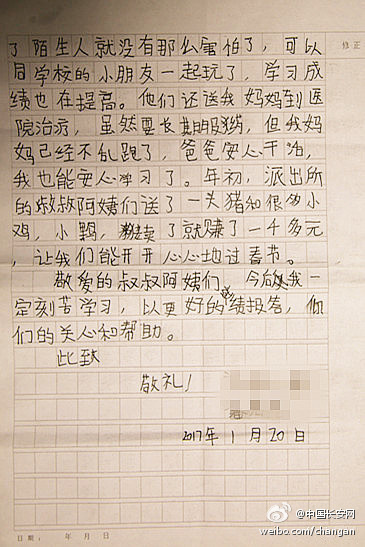 了陌生人就没有那么害怕了，可以
修正
同学校的小朋友一起玩了，学习成
绩也在提高。他们还送我妈妈到医
院治疗，虽然要长期服药，但我妈
妈已经不乱跑了，爸爸安心干活，
我也能安心学习了。年初，派出所
的叔叔阿姨们送了一头猪和很多小
鸡，小鸭，卖了就赚了一千多元
，让我们能开开心心地过春节。
敬爱的叔叔阿姨们，今后我一
定刻苦学习，以更好的成绩报答，你
们的关心和帮助。
此致
敬礼！
2017年1月20日
日期： 年 月 日
@中国长安网
weibo.com/changan